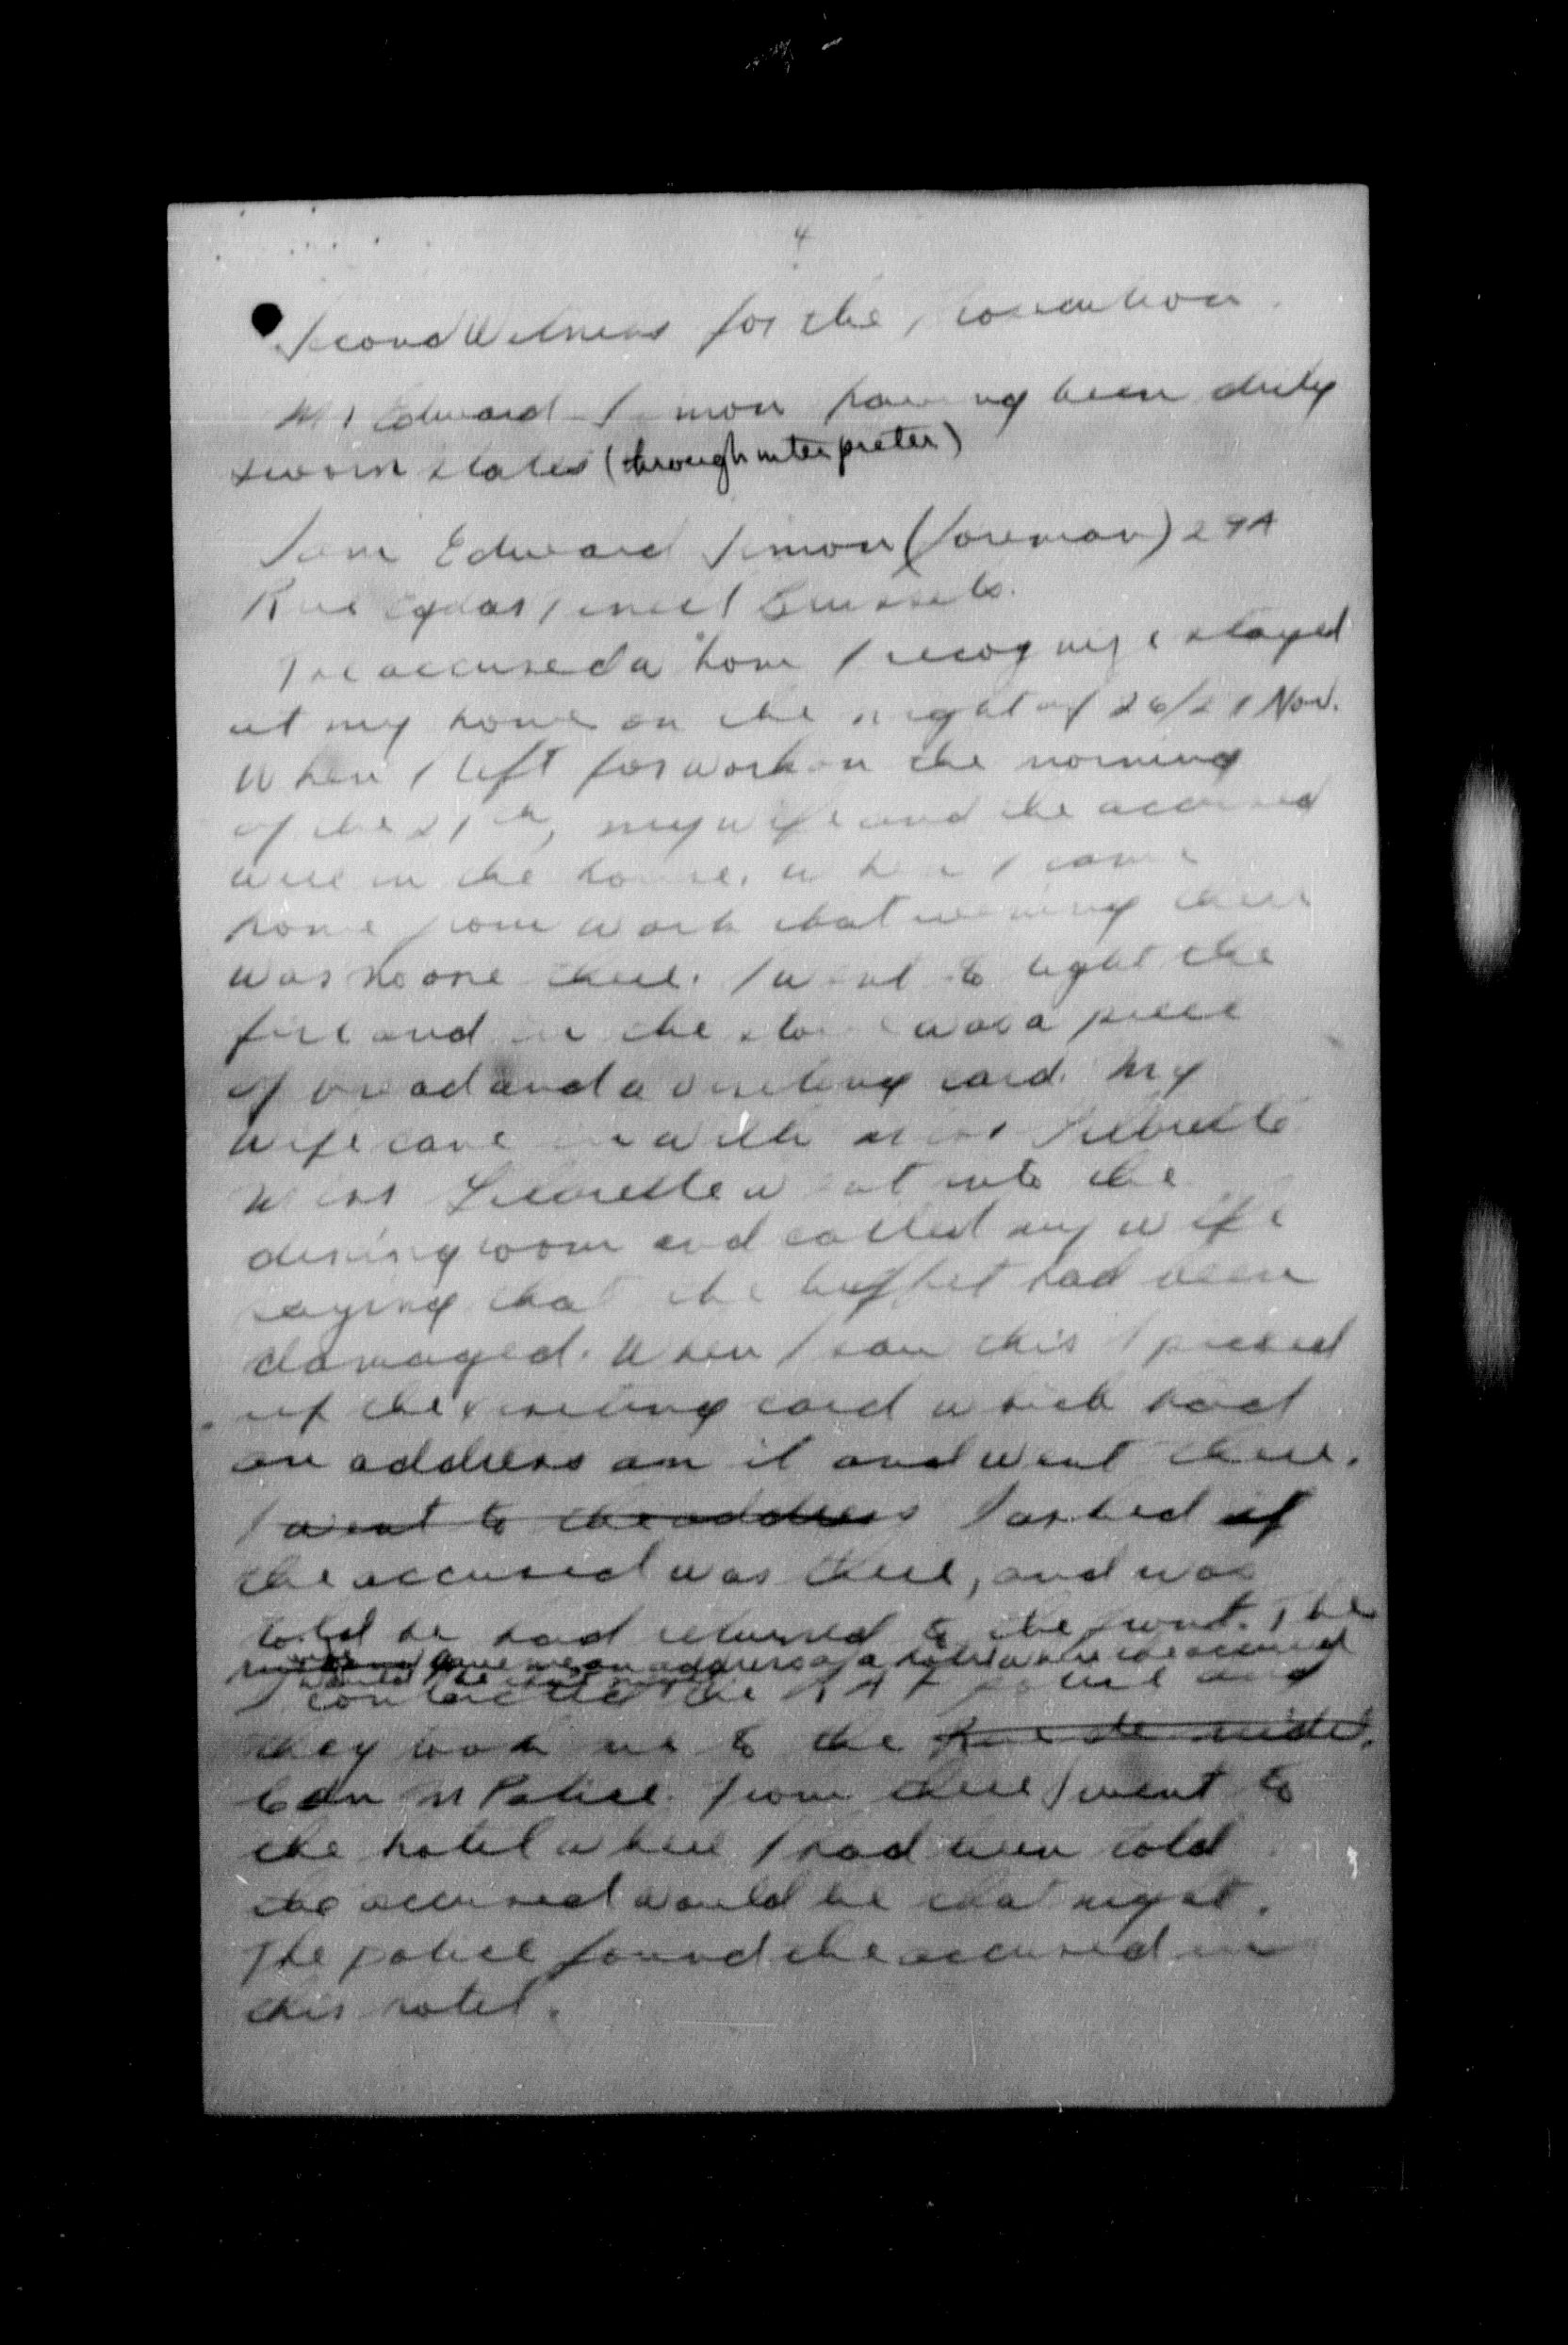 4
Second Witness for the prosecution.
Mr Edward Simon having been duly
sworn states (through interpreter)
I am Edward Simon (foreman) 29A
Rue Brussels.
The accused whom I recognize stayed
at my home on the night of 26/27 Nov.
When I left for work on the morning
of the 27th, my wife and the accused
were in the house. When I came
home from work that evening there
was no one there. I went to light the
fire and in the stove was a piece
of bread and a visiting card. My
wife came in with Miss
Miss went into the
diningroom and called my wife
saying that the buffet had been
damaged. When I saw this I picked
up the visiting card which had
an address on it and went there.
I went to the address I asked if
the accused was there, and was
told he had returned to the front. The
gave me an address of a hotel where the accused
would be that night
I contacted the RAF police and
they took me to the Rue de
Cdn M Police. From there I went to
the hotel where I had been told
the accused would be that night.
The police found the accused in
this hotel.